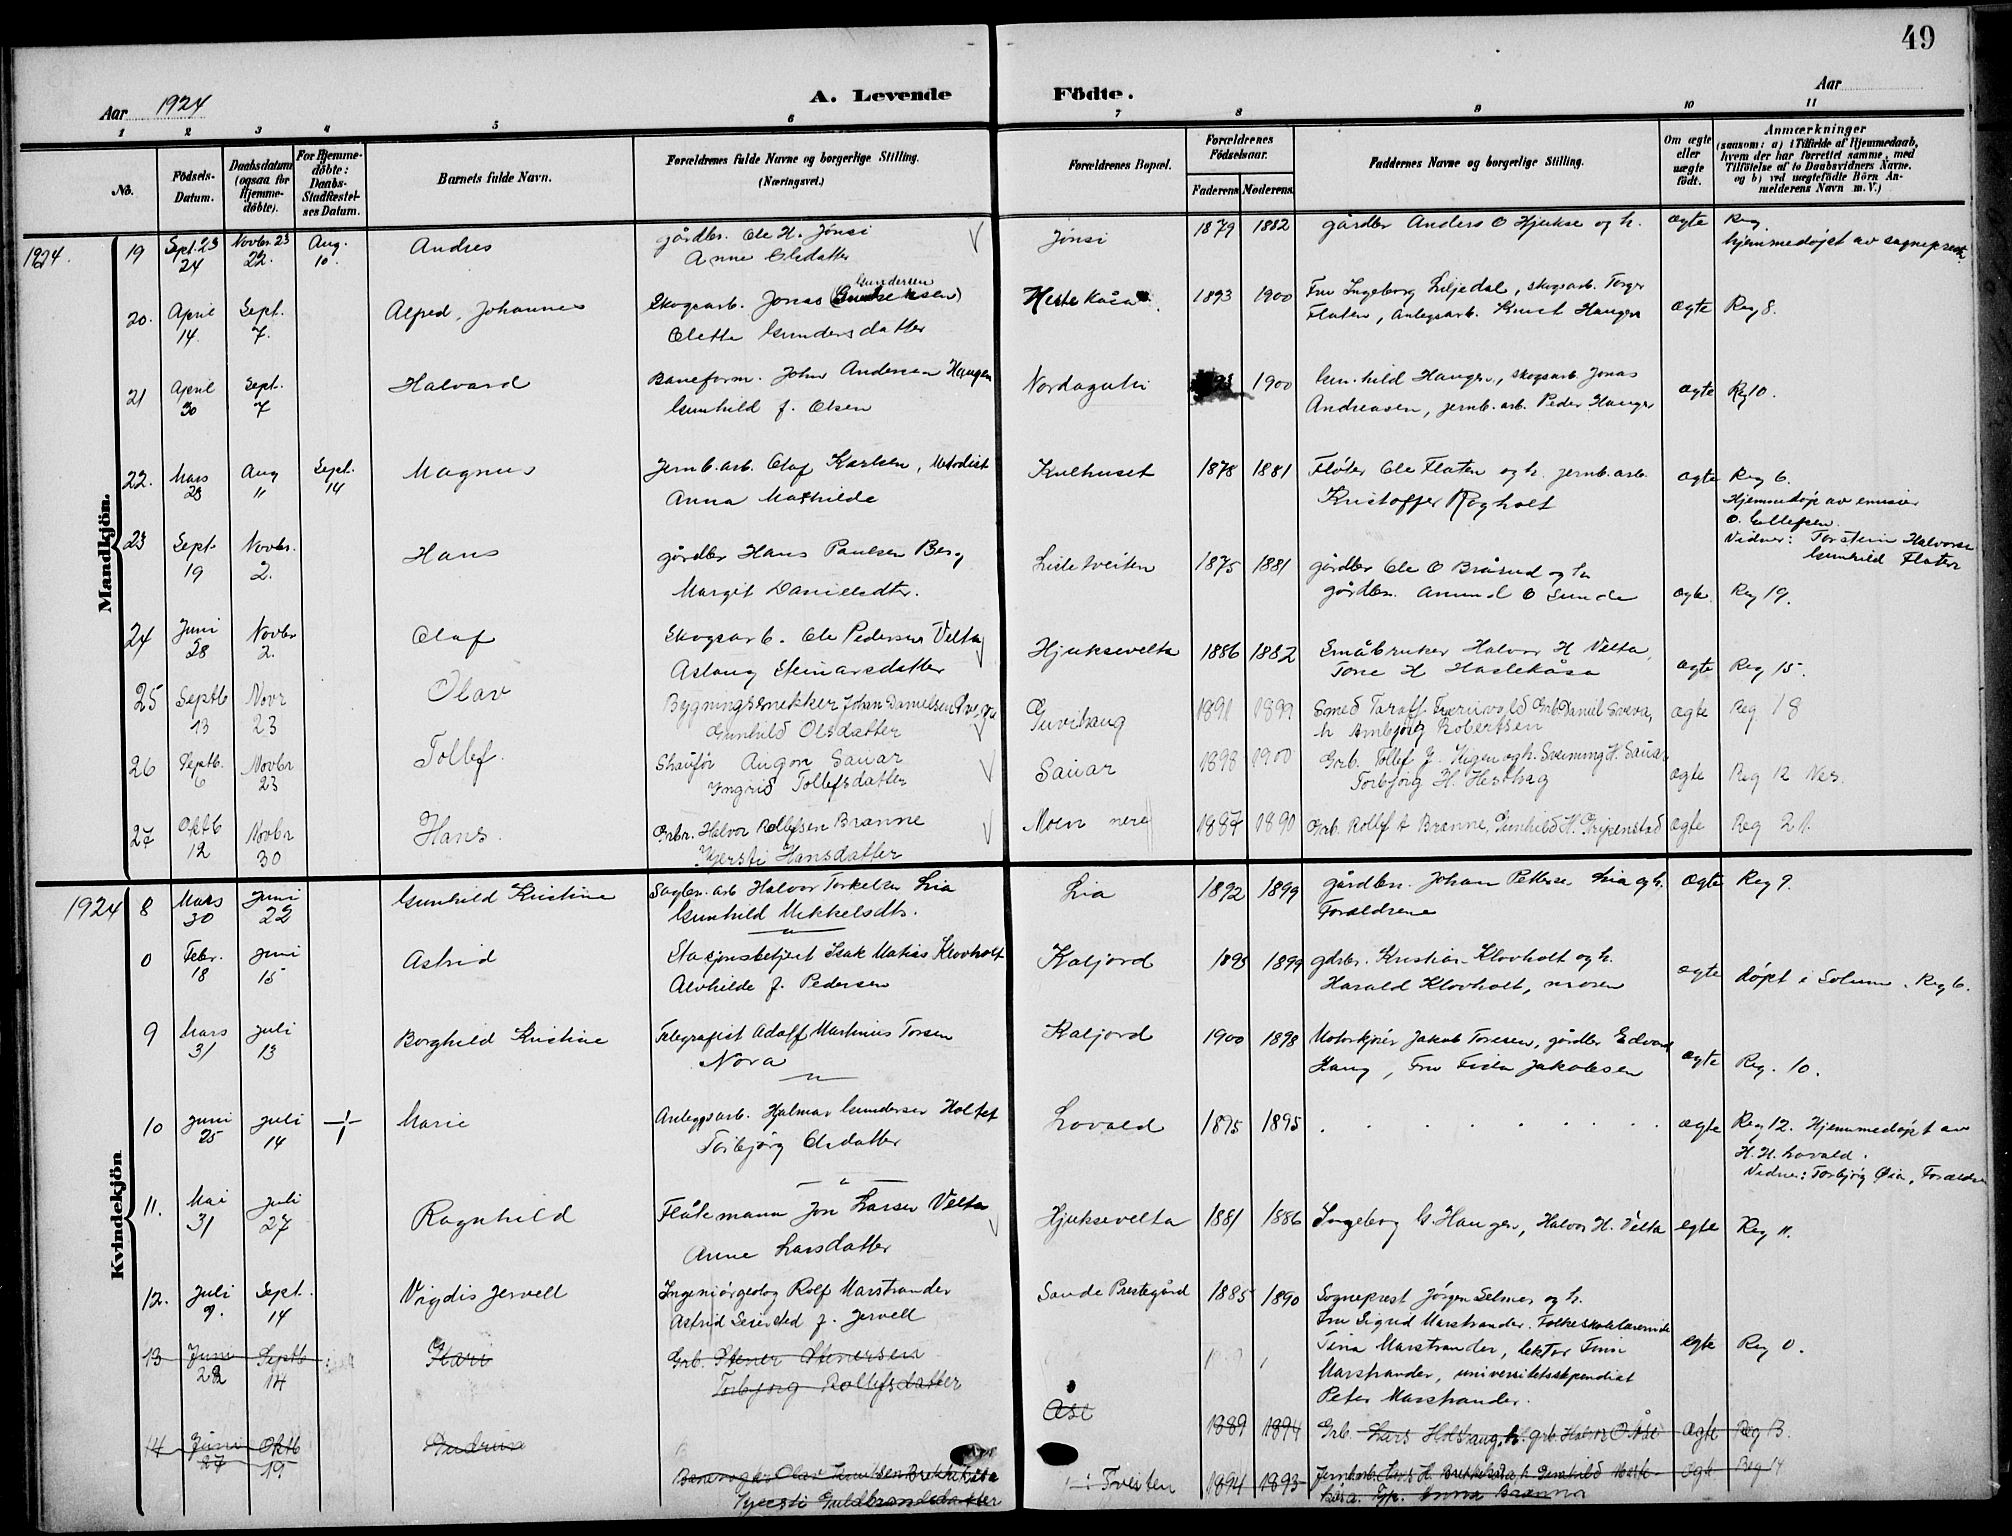 49
Aar 1924
A. Levende Födte.
Aar
1 2 3 4 5 6 7 8 9 10 11
No.
Födsels-Datum.
Daabsdatum (ogsaa for Hjemme-döbte).
For Hjemme-döbte: Daabs-Stadfæstel-ses Datum.
Barnets fulde Navn.
Forældrenes fulde Navne og borgerlige Stilling. (Næringsvei.)
Forældrenes Bopæl.
Forældrenes Födselsaar.
Faderens. Moderens.
Faddernes Navne og borgerlige Stilling.
Om ægte eller uægte födt.
Anmærkninger (saasom: a) i Tilfælde af Hjemmedaab, hvem der har forrettet samme, med Tilföielse af to Daabsvidners Navne, og b) ved uægtefödte Börn An-melderens Navn m. V.)
Mandkjön.
1924. 19 Sept. 23 24 Novbr. 23 22. Aug. 10. Andres gårdbr. Ole H. Jønsi Jønsi 1879 1882 gårdbr Anders O Hjukse og h. ægte Reg
Anne Olsdatter hjemmedøpt av sogneprest
20. April 14. Sept. 7. Alfred, Johannes Skogsarb. Jonas Gundersen Hestekåsa 1893 1900 Fru Ingeborg Liljedal, skogsarb. Torger ægte Reg 8.
Olette Gundersdatter Flaten, anlegsarb. Knut Haugen
21 April 30 Sept. 7 Halvard Baneform. John Andersen Haugen Nordagutu 1900 Gunhild Haugen, skogsarb. Jonas ægte Reg 10.
Gunhild f. Olsen Andreasen, jernb. arb. Peder Haugen
22. Mars 28 Aug 11 Sept. 14 Magnus Jernb. arb. Olaf Karlsen, Metodist Kulhuset 1878 1881 Fløter Ole Flaten og h. jernb. arb. ægte Reg 6.
Anna Mathilde Kristoffer Rogholt Hjemmedøp av emissær
O. Ellefsen.
Vidner: Torstein Halvorsen
Gunhild Flaten
23 Sept. 19 Novbr. 2. Hans gårdbr Hans Paulsen Berg Lisletveiten 1875 1881 gårdbr Ole O Bråsud og h
Margit Danielsdtr. gårdbr. Amund O Sunde ægte. Reg 19.
24 Juni 28 Novbr 2. Olaf Skogsarb. Ole Pedersen Velta Hjuksevelta 1886 1882 Småbruker Halvor H Velta,
Aslaug Steinarsdatter Tone H Haslekåsa ægte Reg 15.
25 Septb 13 Novr 23 Olav Bygningssnekker Johan Danielsen Guvihaug 1891 1899 Smed ægte Reg 18
Gunhild Olsdatter h Ambjørg Robertsen
26 Septb. 6 Novbr 23 Tollef Shaufør Augon Sauar Sauar 1898 1900 Grb. Tollef
Yngrid Tollefsdatter Torbjørg H. Hesthag ægte Reg 12
27 Oktb 12 Novbr 30 Hans. Grbr. Halvor Rollefsen Brænne Moen nere 1887 1890 Grb. Rollef A Brænne, Gunhild H. Gripenstad ægte Reg 21.
Kjersti Hansdatter
Kvindekjön
1924 8 Mars 30 Juni 22 Gunhild Kristine Sagbr. arb Halvor Torkelsen Lia Lia 1892 1899 gårdbr. Johan Pettersen Lia og h. ægte Reg 9.
Gunhild Mikkelsdtr. Forældrene
0 Febr. 18 Juni 15 Astrid Stasjonsbetjent Isak Matias Klovholt Kaljord 1895 1899 gdsbr. Kristian Klovholt og h. ægte døpt i Solum. Reg 6.
Alvhilde f. Pedersen Harald Klovholt,
9 Mars 31 Juli 13 Borghild Kristine Telegrafist Adolf Martinius Torsen Kaljord 1900 1898 Motorkjører Jakob Toresen, gårdbr Edvard
Nora Haug, Fru Jakobsen ægte Reg. 10.
10 Juni 25 Juli 14 Marie Anleggsarb. Hjalmar Gundersen Holtet Lovald 1895 1895 ægte Reg 12. Hjemmedøpt av
Torbjørg Olsdatter H. H. Lovald.
Vidner: Torbjørg Øia, Forældre
11. Mai 31 Juli 27 Ragnhild Flåtemann Jon Larsen Velta Hjuksevelta 1881 1886 Ingeborg G. Haugen, Halvor H. Velta egte Reg 11.
Anne Larsdatter
12. Juli 9. Sept. 14 Vigdis Jervell Ingeniørgeolog Rolf Marstrander Saude Prestegård 1885 1890 Sogneprest Jørgen Selmer og h.
Astrid Seiersted f. Jervell Fru Sigrid Marstrander. Folkeskolelærerinde
Tina Marstrander, lektor Finn egte Reg 0.
Marstrander, universitetsstipendiat
Peter Marstrander.
13 Juni 22 Septb 14 Kari Grb. Stener Stenersen Ase 1889 1894 Grb. Lars Holthaug, h. grb. Halvor O. Åse ægte Reg 13.
Torbjørg Rollefsdatter
14 Juni 27 Oktb 19 Gudrun Banevogter Olav Knutsen Brekkekåsa Tveiten 1894 1893 Jernb. arb. Lars H. Brekkekåsa, h Gunhild egte Reg 14
Kjersti Guldbrandsdatter Anna Brænna